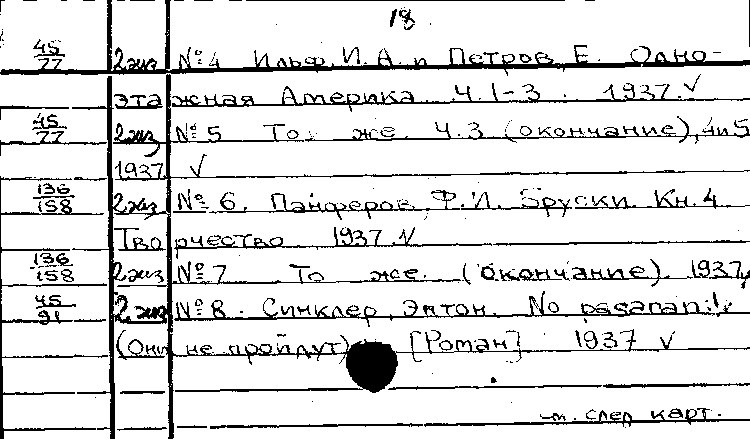 18.
45/77 2 экз № 4 Ильф, И.А. и Петров, Е. Одно-
этажная Америка. Ч. 1-3. 1937. √
45/77 2 экз № 5 То же. Ч. 3 (окончание), 4 и 5
1937 √
136/158 2 экз № 6. Панферов, Ф.И. Бруски. Кн. 4
Творчество 1937. √
136/158 2 экз № 7 То же. (Окончание). 1937,
45/91 2 экз № 8. Синклер, Эптон. No pasaran!
(Они не пройдут) [Роман] 1937 √
см. след карт.